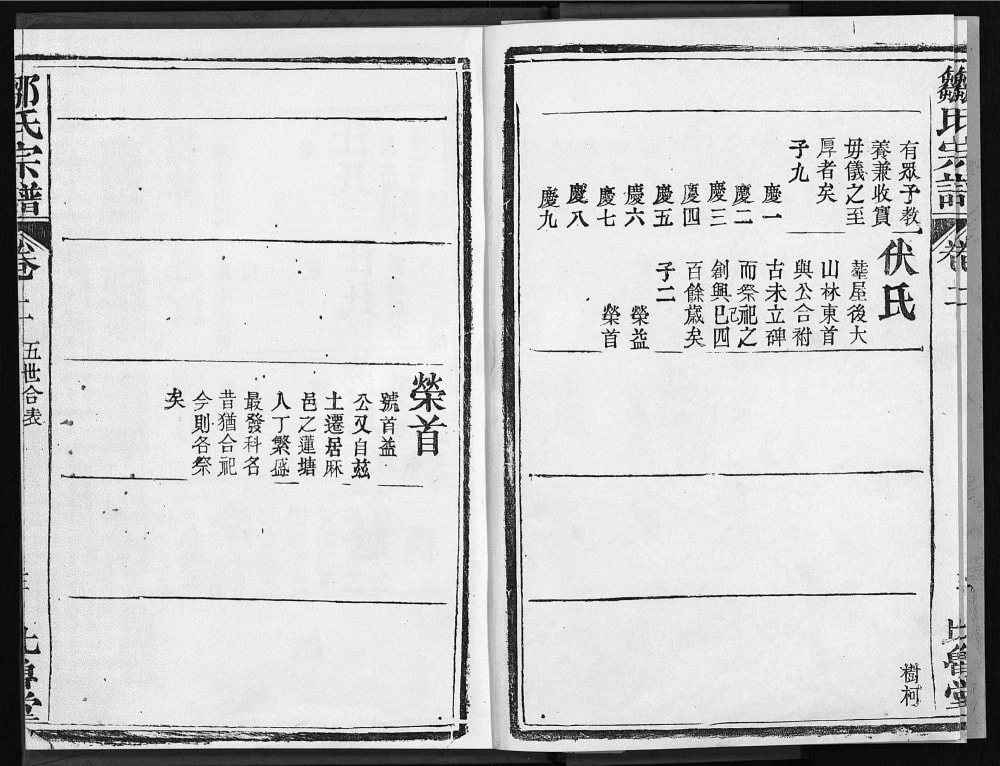 鄒氏宗譜
卷二
三
比魯堂
有眾予教
養兼收實
毋儀之至
厚者矣
子九
慶一
慶二
慶三
慶四
慶五
慶六
慶七
慶八
慶九
伏氏
塟屋後大
山林東首
與公合祔
古未立碑
而祭祀之
創興已四
百餘歲矣
子二
榮益
榮首
樹柯
榮首
號首益
公又自茲
土遷居麻
邑之蓮塘
人丁繁盛
最發科名
昔猶合祀
今則各祭
矣
鄒氏宗譜
卷二
五世合表
三
比魯堂